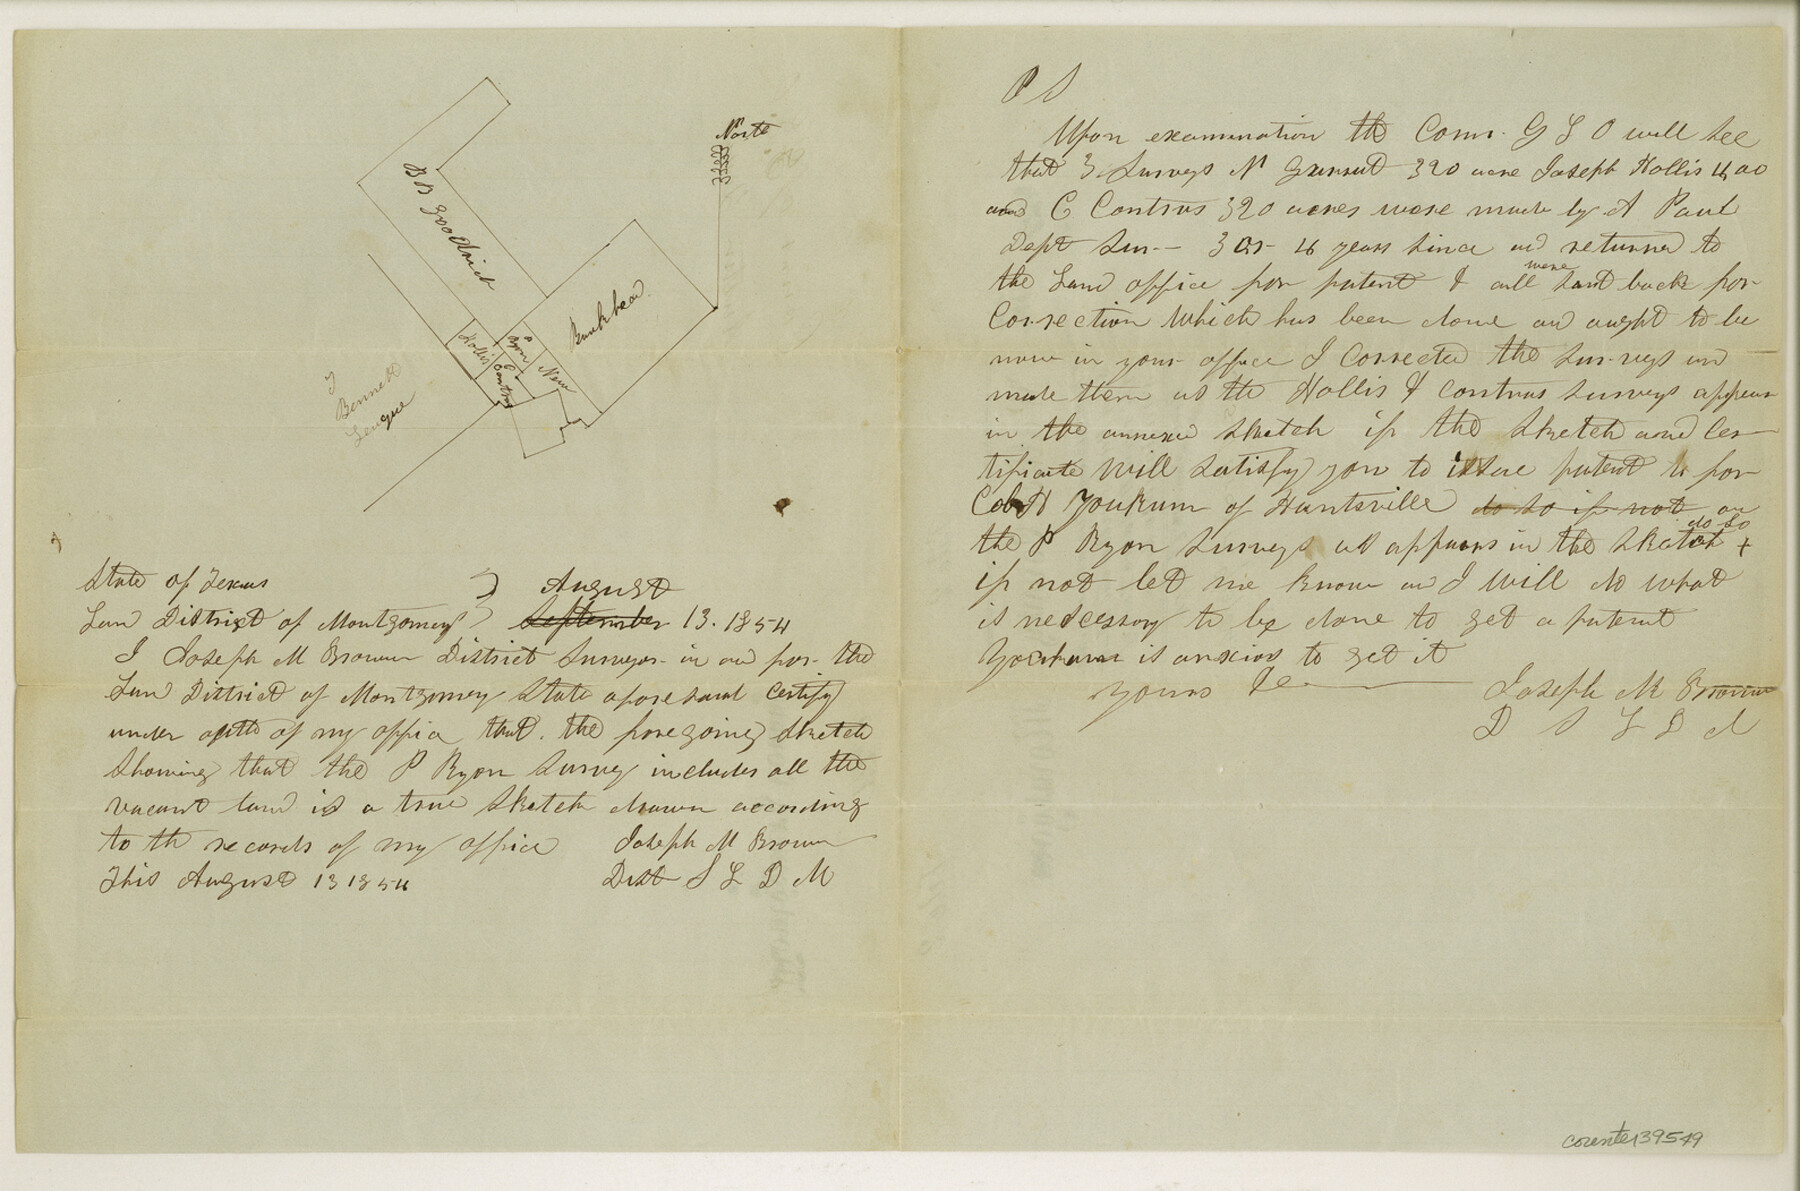 North
B B Goodrich
Bankhead
Hollis
P Ryon
C Contrus
New
J
Bennett
League
State of Texas
Lan District of Montgomery } August
September 13. 1854
I Joseph M Brown District Surveyor in an for the
Lan District of Montgomery State aforesaid Certify
under oath of my office that the foregoing Sketch
Showing that the P Ryon Survey includes all the
vacant land is a true Sketch drawn according
to th records of my office Joseph M Brown
This August 13 1854 Dist S L D M
P S
Upon examination the Com. G L O will See
that 3 Surveys N 320 acre Joseph Hollis 400
and C Contrus 320 acres were made by A Paul
Dept Sur— 3 or 4 years Since and returned to
the Land office for patent & all were Sent back for
Correction Which has been done and aught to be
now in your office I Corrected the Surveys and
made them as the Hollis & Contrus Surveys appear
in the annexed Sketch if the Sketch and Cer-
tificate Will Satisfy you to issue patent to for
Col H Yoakum of Huntsville do so if not on
the P Ryon Surveys as appears in the Sketch do so +
if not let me know and I will do what
is necessary to be done to get a patent
Yoakum is anxios to get it
Yours &c Joseph M Brown
D S L D M
counter 39549